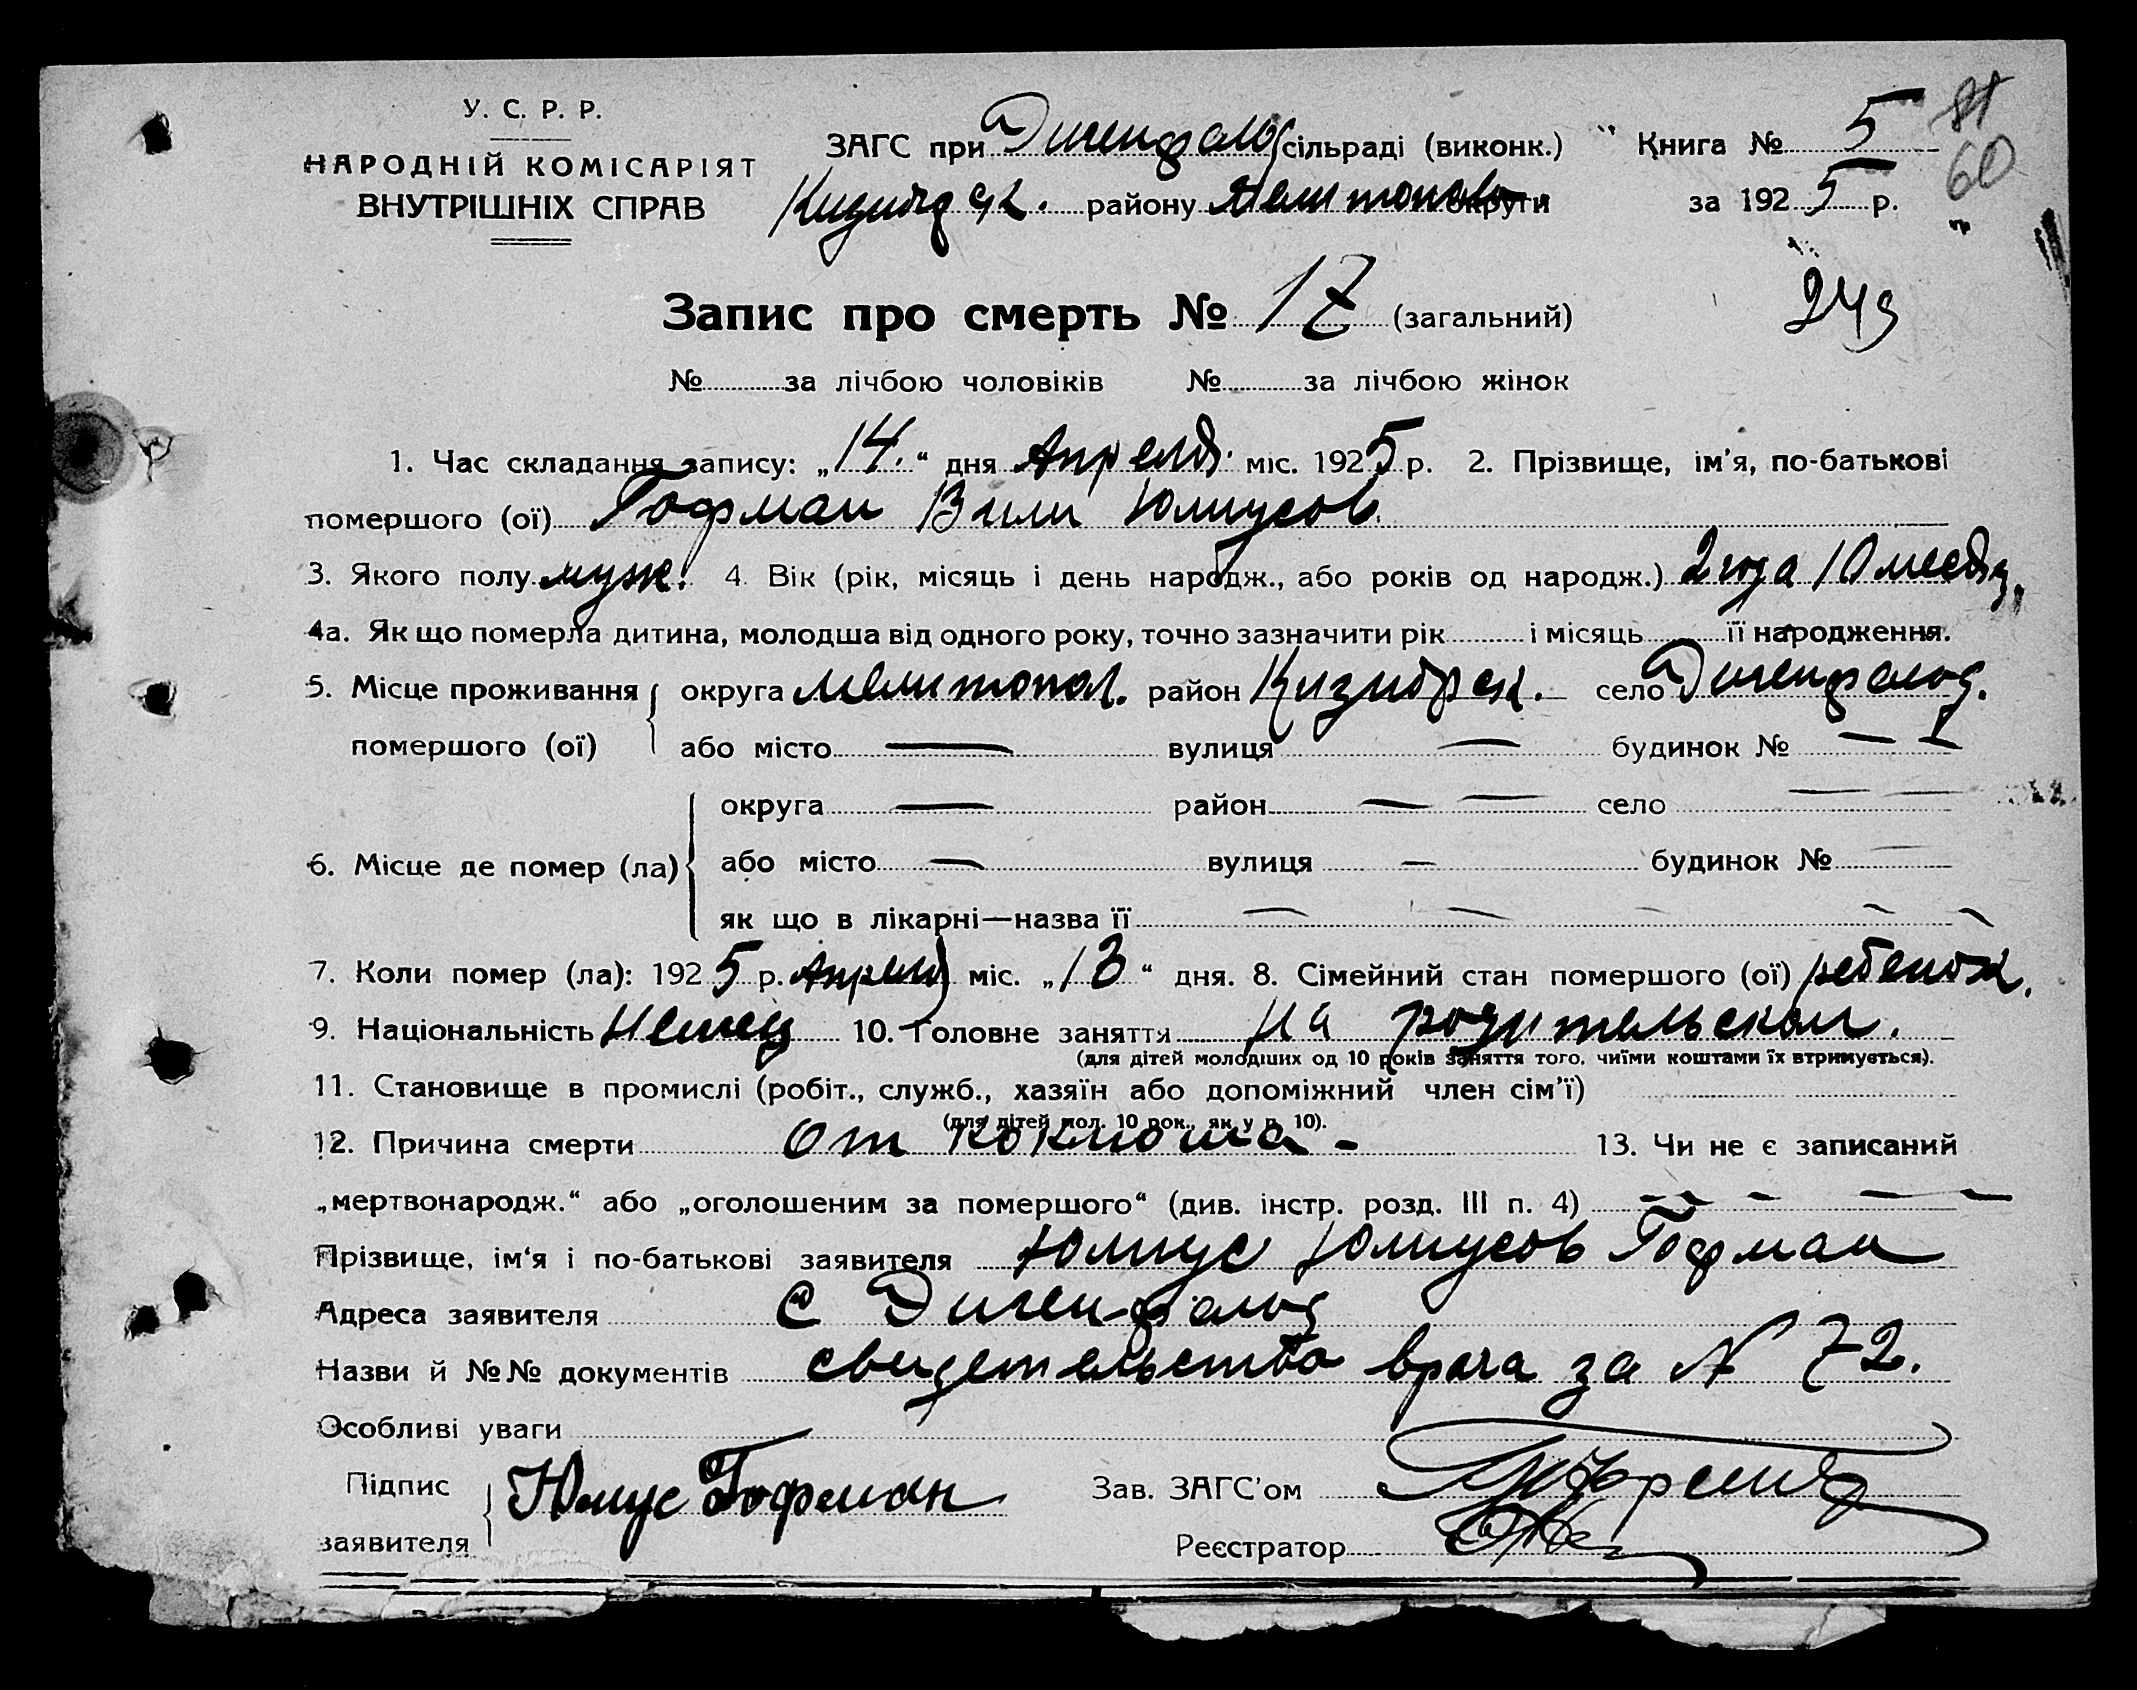 У. С. Р. Р.
НАРОДНІЙ КОМІСАРІЯТ
ВНУТРІШНІХ СПРАВ
ЗАГС при сільраді (виконк.)
району Мелитопов. округи
Книга № 5
за 1925 р.
60
243
Запис про смерть № 17 (загальний)
№ за лічбою чоловіків № за лічбою жінок
1. Час складання запису: „14.“ дня Апреля міс. 1925 р. 2. Прізвище, ім'я, по-батькові
помершого (ої) Гофман Вили Юлиусов.
3. Якого полу муж. 4. Вік (рік, місяць і день народж., або років од народж.) 2 года 10 месяц.
4а. Як що померла дитина, молодша від одного року, точно зазначити рік і місяць її народження.
5. Місце проживання округа Мелитопол. район село
помершого (ої) або місто — вулиця — будинок № —
округа — район — — село — —
6. Місце де помер (ла) або місто — вулиця — будинок № —
як що в лікарні—назва її — — — — —
7. Коли помер (ла): 1925 р. Апреля міс. „13“ дня. 8. Сімейний стан помершого (ої) ребенок.
9. Національність Немец 10. Головне заняття на родительском.
(для дітей молодших од 10 років заняття того, чиїми коштами їх втримується).
11. Становище в промислі (робіт., служб., хазяїн або допоміжний член сім'ї)
(для дітей мол. 10 рок., як у р. 10).
12. Причина смерти от коклюша - 13. Чи не є записаний
„мертвонародж.“ або „оголошеним за помершого“ (див. інстр. розд. III п. 4) — — — — —
Прізвище, ім'я і по-батькові заявителя Юлиус Юлиусов Гофман
Адреса заявителя с
Назви й №№ документів свидетельство врача за № 72.
Особливі уваги
Підпис
заявителя Юлиус Гофман
Зав. ЗАГС'ом
Реєстратор